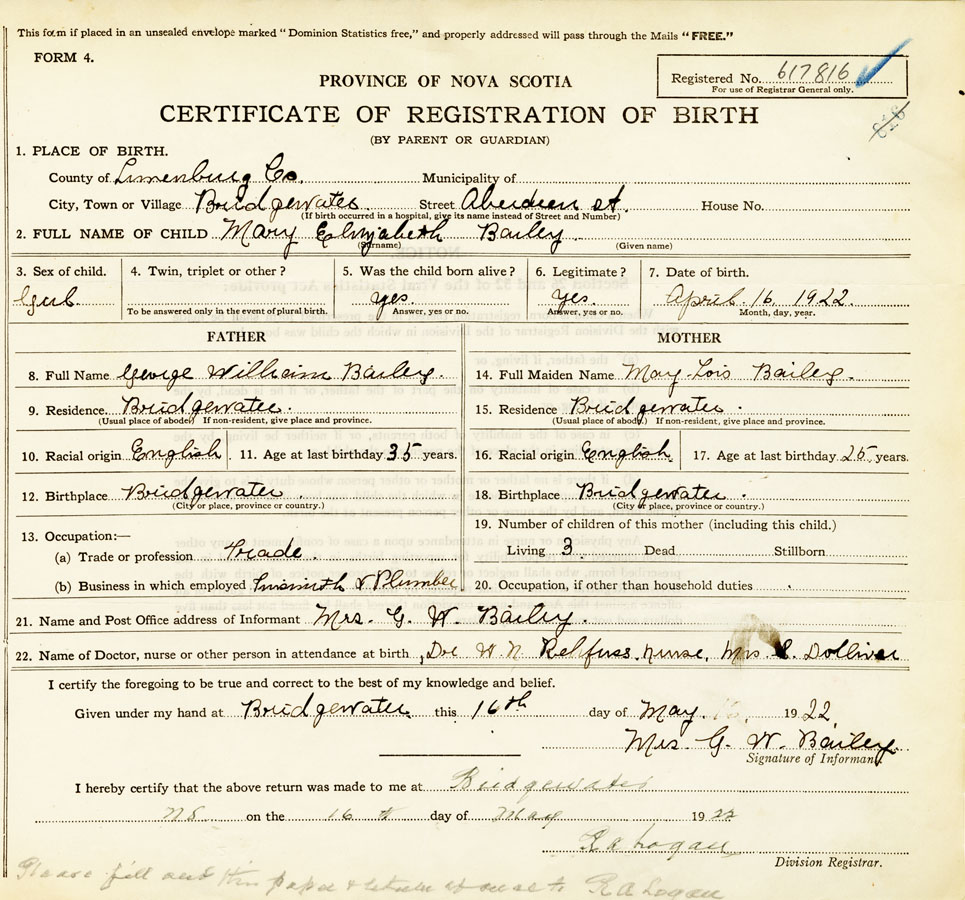 This form if placed in an unsealed envelope marked "Dominion Statistics free," and properly addressed will pass through the Mails "FREE."
FORM 4.
Registered No. 617816
For use of Registrar General only.
PROVINCE OF NOVA SCOTIA
CERTIFICATE OF REGISTRATION OF BIRTH
(BY PARENT OR GUARDIAN)
1. PLACE OF BIRTH.
County of Lunenburg Co. Municipality of
City, Town or Village Bridgewater. Street Aberdeen st. House No.
(If birth occurred in a hospital, give its name instead of Street and Number)
2. FULL NAME OF CHILD Mary Elizabeth Bailey
(Surname) (Given name)
3. Sex of child. 4. Twin, triplet or other? 5. Was the child born alive? 6. Legitimate? 7. Date of birth.
Girl. yes. Yes. April. 16. 1922.
To be answered only in the event of plural birth. Answer, yes or no. Answer, yes or no. Month, day, year.
FATHER MOTHER
8. Full Name George William Bailey. 14. Full Maiden Name May Lois Bailey.
9. Residence. Bridgewater. 15. Residence Bridgewater.
(Usual place of abode) If non-resident, give place and province. (Usual place of abode.) If non-resident, give place and province.
10. Racial origin English 11. Age at last birthday 35 years. 16. Racial origin English. 17. Age at last birthday 25 years.
12. Birthplace Bridgewater. 18. Birthplace Bridgewater.
(City or place, province or country.) (City or place, province or country.)
13. Occupation:— 19. Number of children of this mother (including this child.)
(a) Trade or profession Trade. Living 3. Dead Stillborn
(b) Business in which employed Tinsmith & Plumber 20. Occupation, if other than household duties
21. Name and Post Office address of Informant Mrs. G. W. Bailey.
22. Name of Doctor, nurse or other person in attendance at birth, Dr W. N. Rehfuss. nurse, Mrs Dolliver
I certify the foregoing to be true and correct to the best of my knowledge and belief.
Given under my hand at Bridgewater this 16th day of May 1922.
Mrs. G. W. Bailey.
Signature of Informant
I hereby certify that the above return was made to me at Bridgewater
NS on the 16th day of May 1922
R A Logan
Division Registrar.
Please fill out this paper & return at once to R A Logan